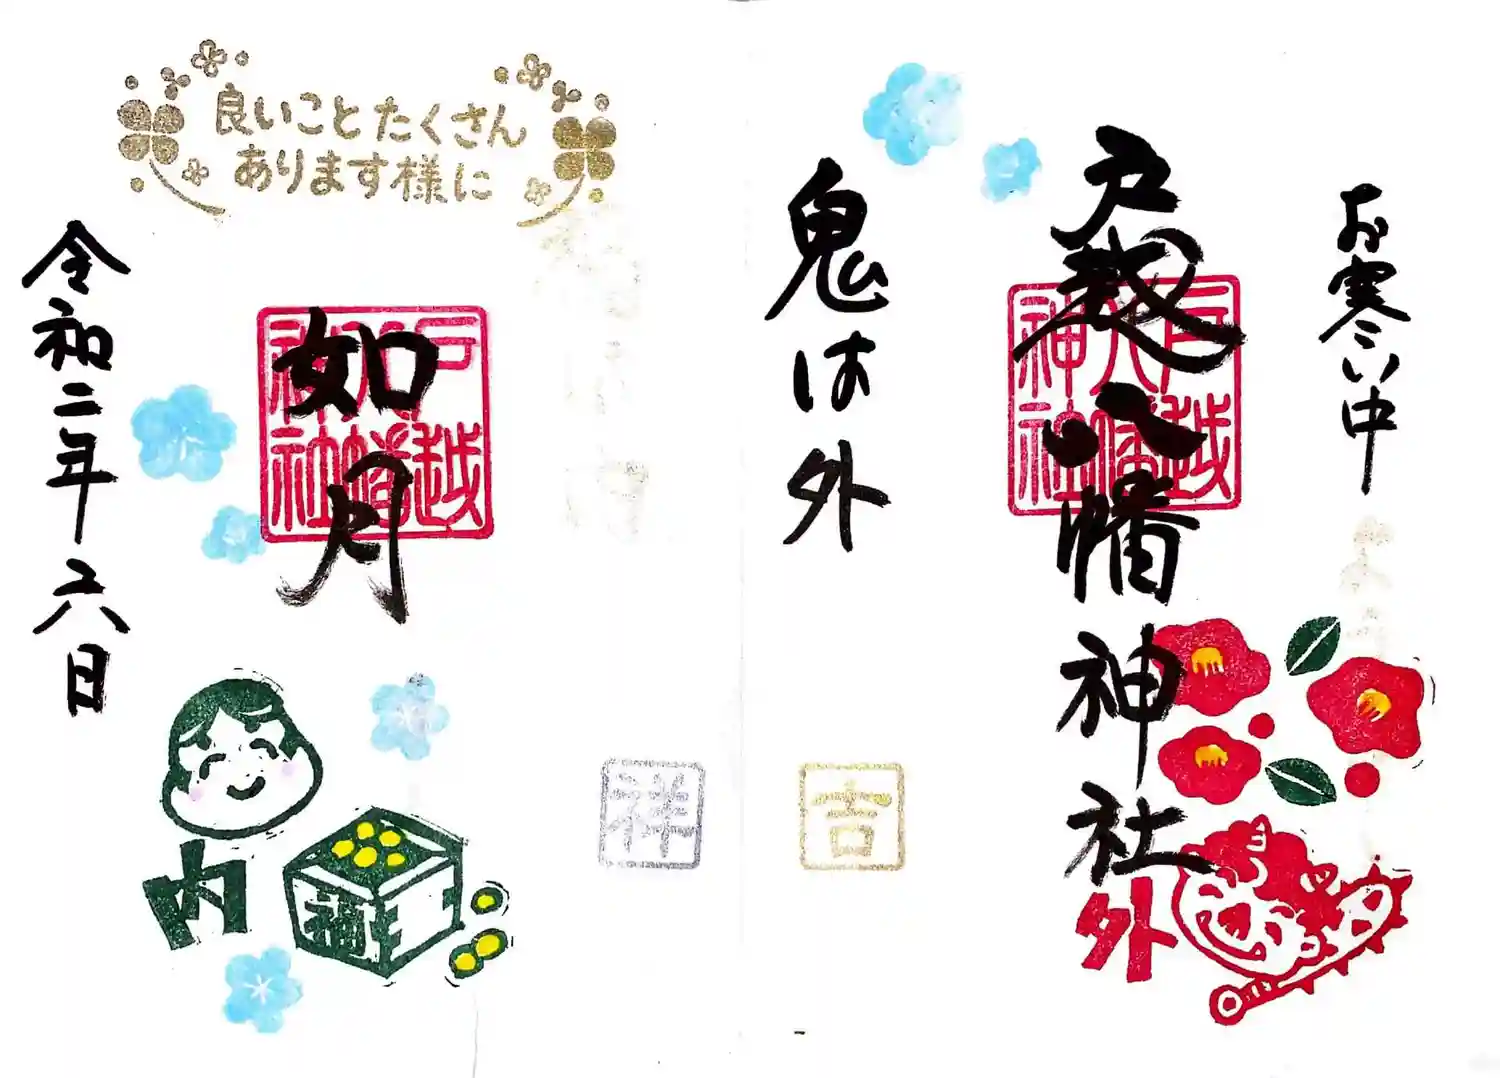 お寒い中
戸越八幡神社
戸越八幡神社
外
鬼は外
吉
祥
良いことたくさん
あります様に
如月
戸越八幡神社
令和二年二六日
内
福